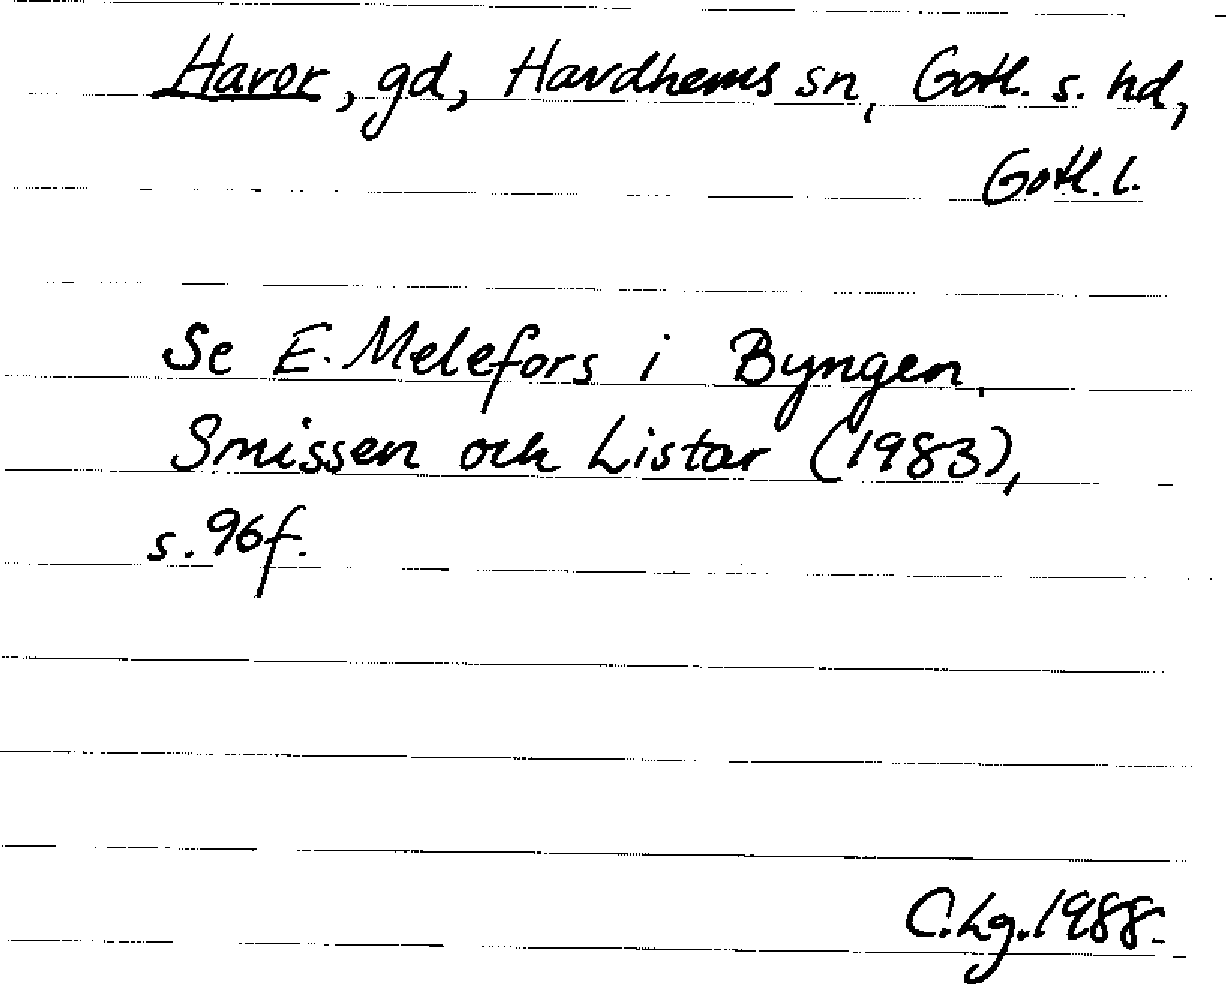 Havor, gd, Havdhems sn, Gotl. s. hd,
Gotl. l.
Se E. Melefors i Byngen,
Smissen och Listar (1983),
s. 96f.
C. Lg. 1988.